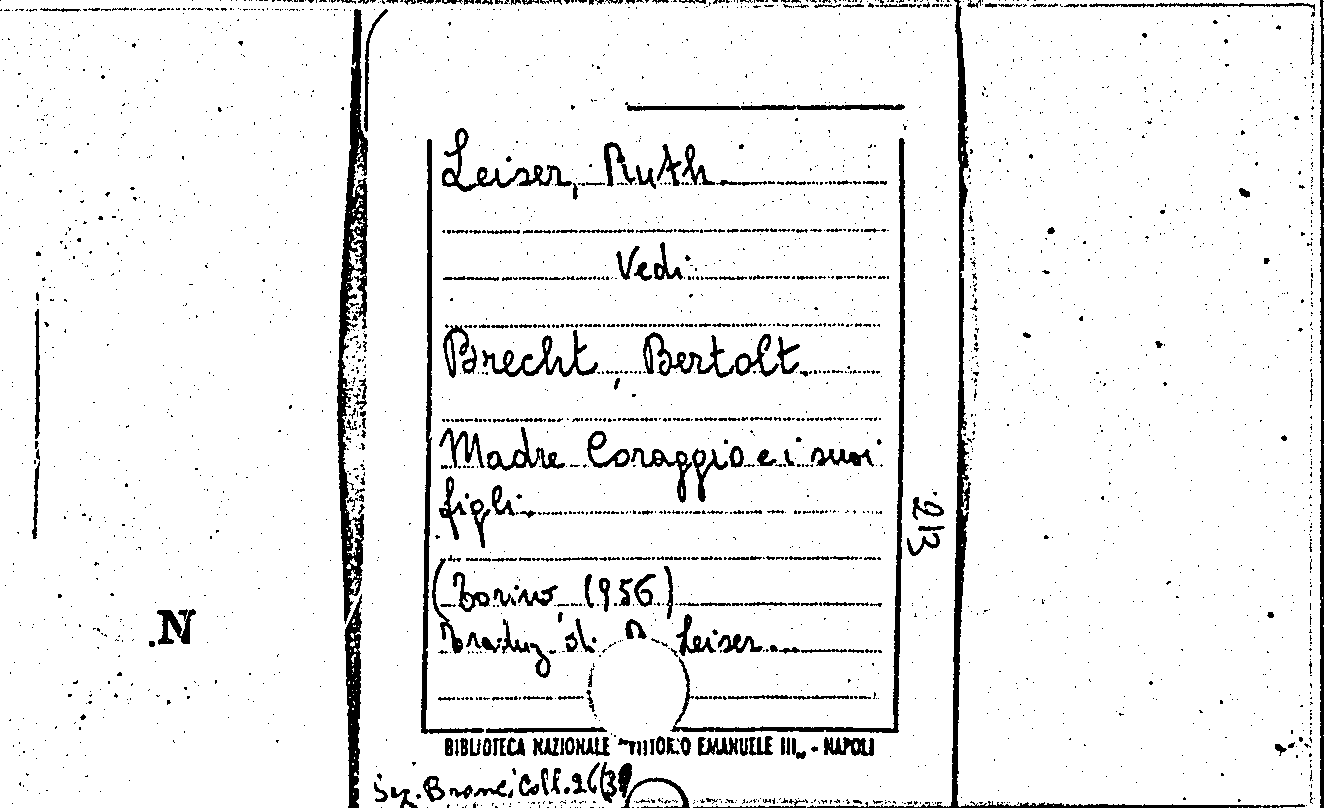 Leiser, Ruth.
Vedi
Brecht, Bertolt.
Madre Coraggio e i suoi
figli.
(Torino, 1956)
Traduz. di R Leiser...
213
N.
BIBLIOTECA NAZIONALE "VITTORIO EMANUELE III„ - NAPOLI
Sez. Branc. Coll.